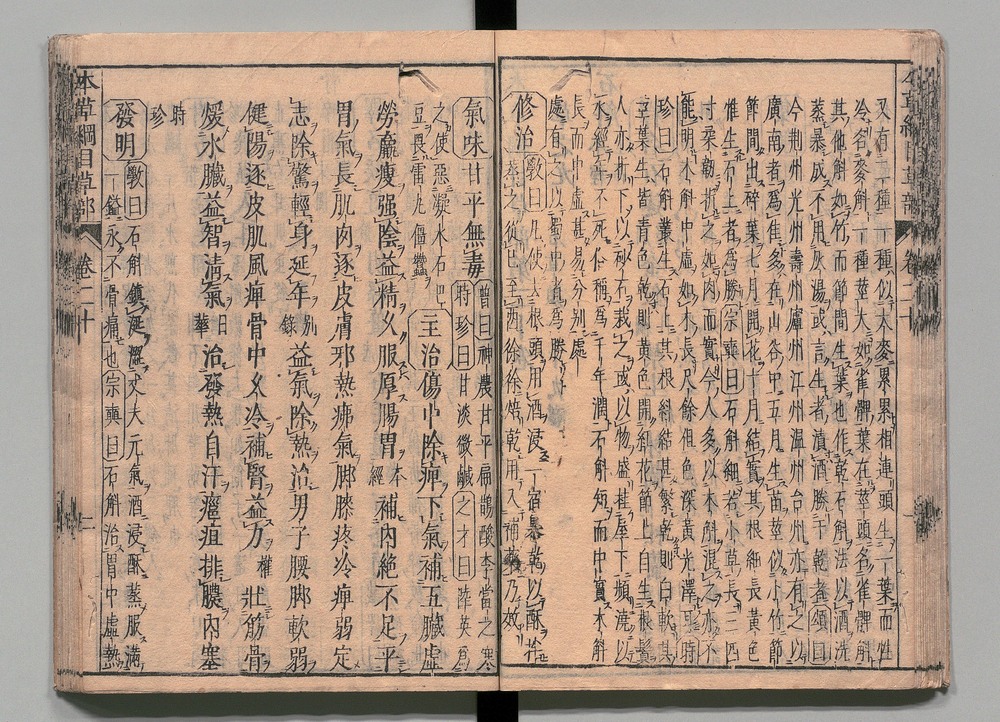 又有一種一種似大麥累累相連頭生一葉而性
冷名麥斛一種莖大如雀髀葉在莖頭名雀髀斛
其他斛如竹而節間生葉也作乾石斛法以酒洗
蒸暴成不用灰湯或言生者漬酒勝于乾者頌曰
今荆州光州壽州廬州江州溫州台州亦有之以
廣南者爲佳多在山谷中五月生苗莖似小竹節
節間出碎葉七月開花十月結實其根細長黃色
惟生石上者爲勝宗奭曰石斛細若小草長三四
寸柔韌折之如肉而實今人多以木斛混之亦不
能明木斛中虛如木長尺餘但色深黃光澤耳時
珍曰石斛叢生石上其根糾結甚繁乾則白軟其
莖葉生皆青色乾則黃色開紅花節上自生根鬚
人亦折下以砂石栽之或以物盛挂屋下頻澆以
水經年不死俗稱爲千年潤石斛短而中實木斛
長而中虛甚易分別處
處有之以蜀中者爲勝
修治 斆曰凡使去根頭用酒浸一宿暴乾以酥拌
蒸之從巳至酉徐徐焙乾用入補藥乃效
氣味 甘平無毒 普曰神農甘平扁鵲酸李當之寒
時珍曰甘淡微鹹之才曰陸英爲
之使惡凝水石巴
豆畏雷丸僵蠶 主治 傷中除痺下氣補五臟虛
勞羸瘦强陰益精久服厚腸胃本經補內絕不足平
胃氣長肌肉逐皮膚邪熱痱氣脚膝疼冷痺弱定
志除驚輕身延年別錄益氣除熱治男子腰脚軟弱
健陽逐皮肌風痺骨中久冷補腎益力權壯筋骨
煖水臟益智清氣日華治發熱自汗癰疽排膿內塞
時珍
發明 斆曰石斛鎮涎澀丈夫元氣酒浸酥蒸服滿
一鎰永不骨痛也宗奭曰石斛治胃中虛熱
本草綱目草部 卷二十 二